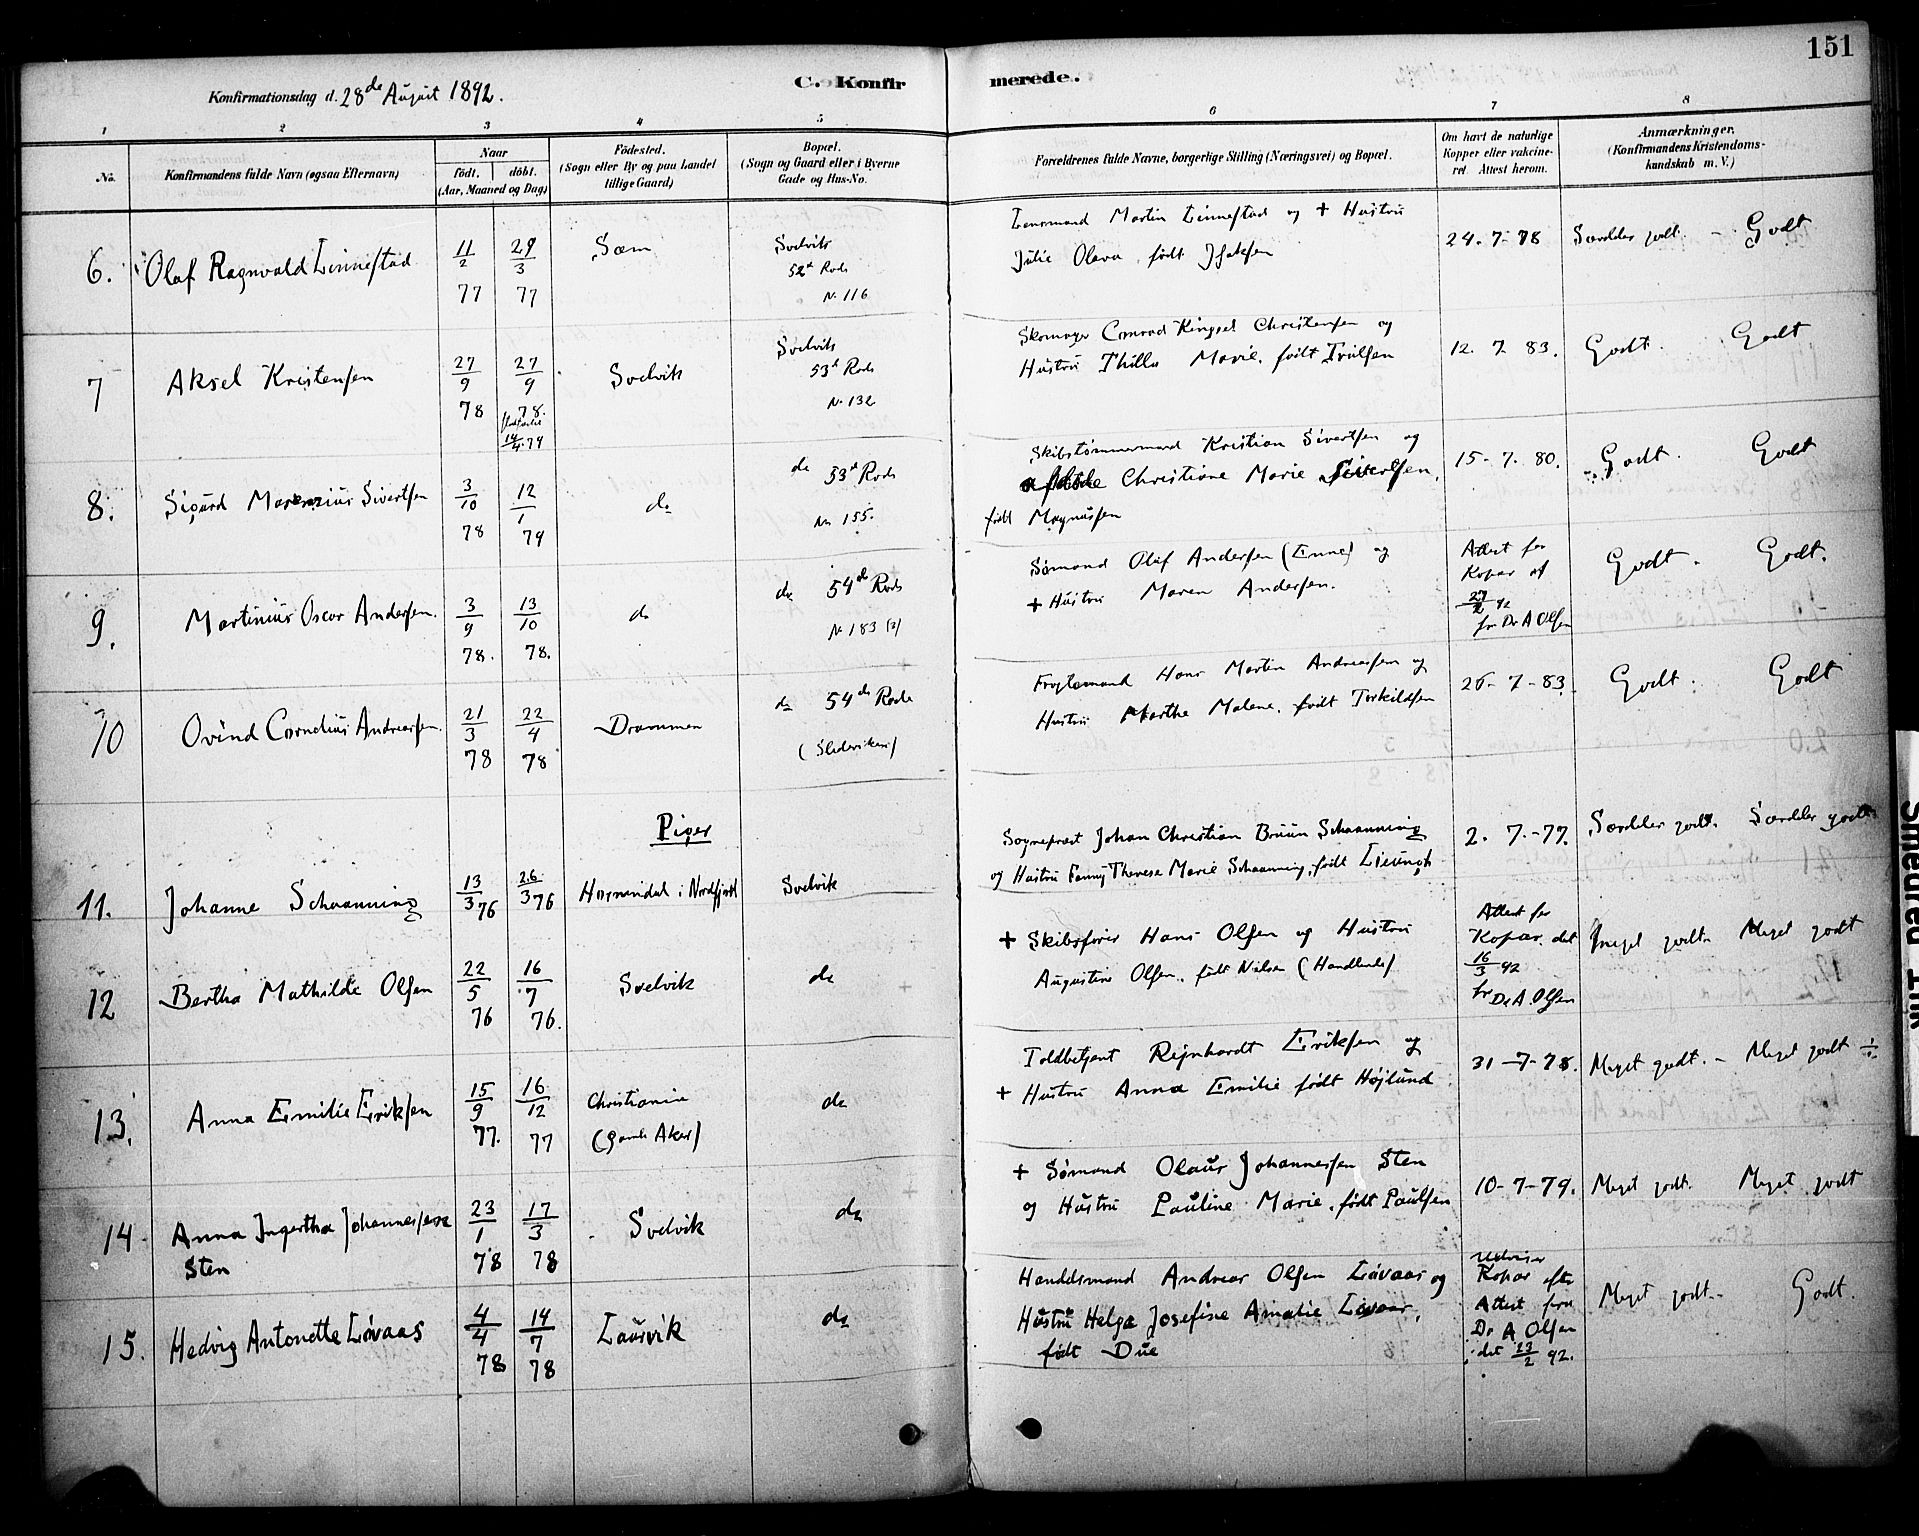 151
Konfirmationsdag d. 28de August 1892.
C. Konfirmerede.
1 2 3 4 5 6 7 8
No.
Konfirmandens fulde Navn (ogsaa Efternavn)
Naar
födt. döbt.
(Aar, Maaned og Dag)
Födested.
(Sogn eller By og paa Landet
tillige Gaard)
Bopæl.
(Sogn og Gaard eller i Byerne
Gade og Hus-No.
Forældrenes fulde Navne, borgerlige Stilling (Næringsvei) og Bopæl.
Om havt de naturlige
Kopper eller vakcine-
ret. Attest herom.
Anmærkninger.
(Konfirmandens Kristendoms-
kundskab m. V.)
6. Olaf Ragnvald Linnestad
11/2 77
29/3 77
Sæm
Svelvik
52d Rode
N. 116
Lensmand Martin Linnestad og + Hustru
Julie Olava, født Isaksen
24-7-78
Særdeles godt. - Godt
7 Aksel Kristensen
27/9 78
27/9 78.
14/4 79
Svelvik
Svelvik
53d Rode
N. 132
Skomager Conrad Christensen og
Hustru Thilla Marie, født Trulsen
12. 7. 83.
Godt. Godt
8. Sigurd Sivertsen
3/10 78
12/1 79
do
do 53d Rode
No 155.
Skibstømmermand Kristian Sivertsen og
Christiane Marie Sivertsen,
født Magnussen
15-7-80.
Godt. Godt
9. Martinius Oscar Andersen.
3/9 78.
13/10 78.
do
do 54de Rode
N. 183
Sømand Olaf Andersen og
+ Hustru Maren Andersen.
Attest for
Kopar af
92
fra Dr A Olsen
Godt. Godt.
10 Ovind Cornelius Andreassen.
21/3 78
22/4 78
Drammen
do 54de Rode
Hans Martin Andreassen og
Hustru Marthe Malene, født Torkildsen
26-7-83.
Godt. Godt
Piger
11. Johanne Schaanning
13/3 76
26/3 76
Hornindal i Nordfjord
Svelvik
Sognepræst Johan Christian Bruun Schaanning
og Hustru Fanny Therese Marie Schaanning, født Lieungh
2. 7.-77.
Særdeles godt. Særdeles godt
12 Bertha Mathilde Olsen
22/5 76
16/7 76.
Svelvik
do
+ Skibsfører Hans Olsen og Hustru
Augustine Olsen, født Nilsen
Attest for
Kopar, det
16/3 92
Dr A. Olsen
Meget godt. Meget godt
13. Anna Emilie Eriksen
15/9 77.
16/12 77
Christiania
(Gamle Aker)
do
Toldbetjent Rejnhardt Eriksen og
+ Hustru Anna Emilie født Højlund
31-7-78.
Meget godt. - Meget godt
14 Anna Ingertha Johannessen
Sten
23/1 78
17/3 78
Svelvik
do
+ Sømand Olaus Johannessen Sten
og Hustru Pauline Marie, født Paulsen
10-7-79.
Meget godt. Meget godt
15. Hedvig Antonette Løvaas
4/4 78
14/7 78
Laurvik
do
Handelsmand Andreas Olsen Løvaas og
Hustru Helga Josefine Amalie Løvaas,
født Due
Udviser
Kopar efter
Attest fra
Dr A Olsen
det 23/2 92.
Meget godt. Godt.